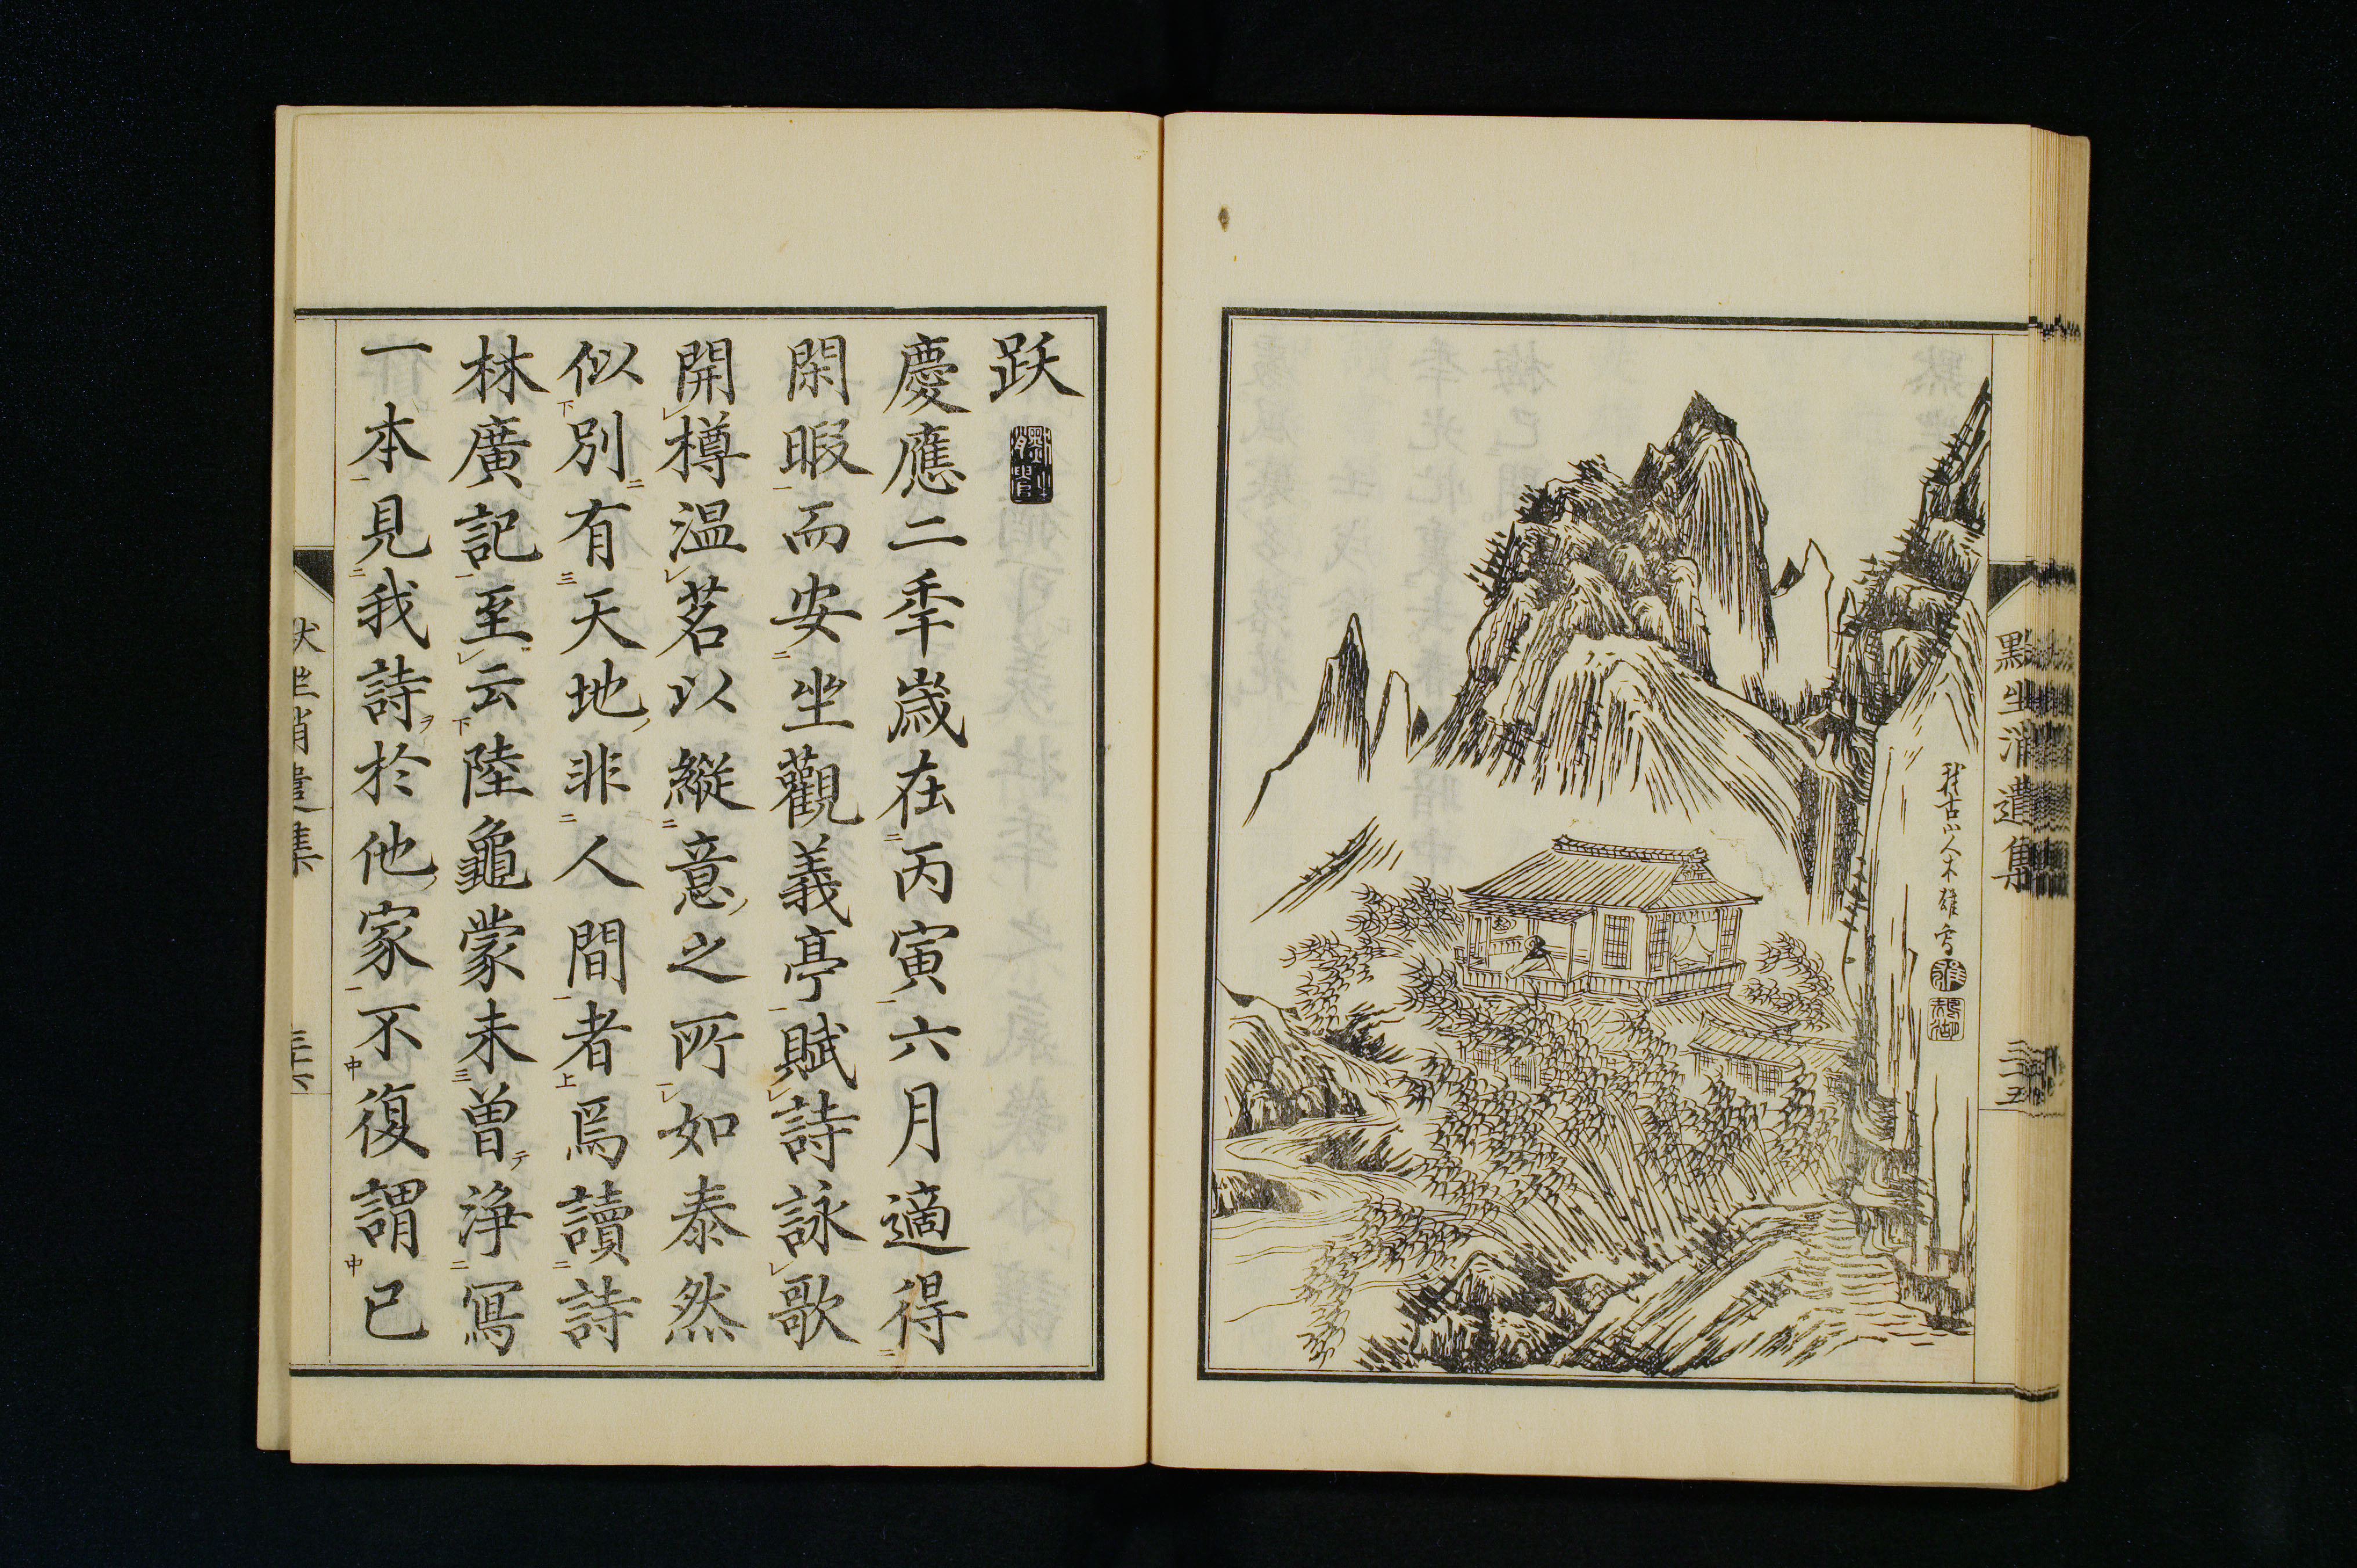 默坐消遣集
三十五
跋
慶應二年歲在丙寅六月適得
閑暇而安坐觀義亭賦詩詠歌
開樽温茗以縱意之所如泰然
似別有天地非人間者焉讀詩
林廣記至云陸龜蒙未曾淨寫
一本見我詩於他家不復謂已
默坐消遣集
三十六